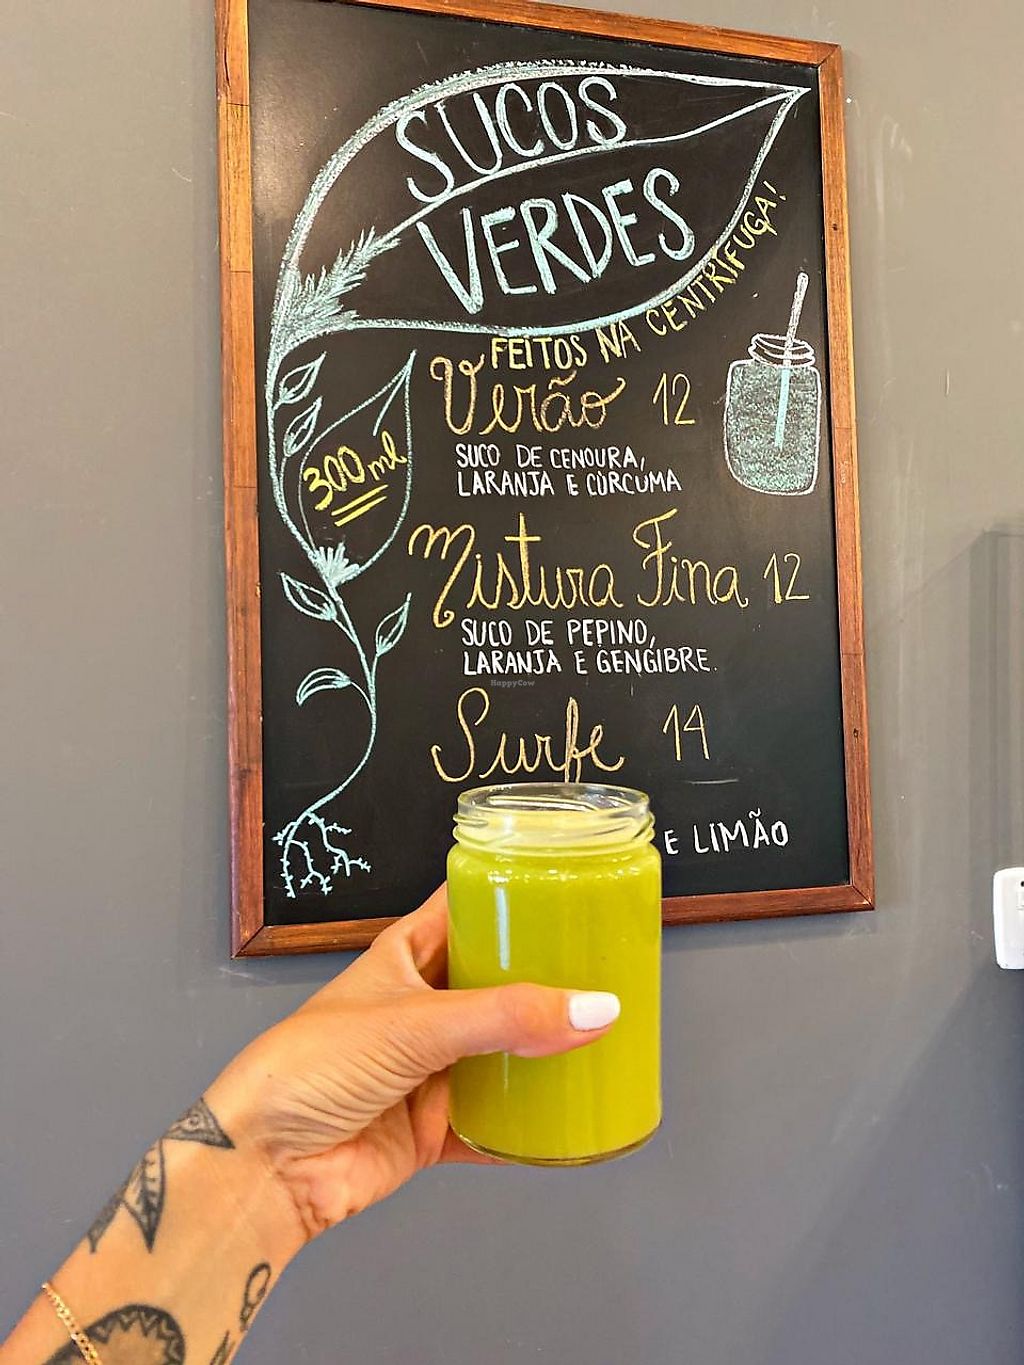 SUCOS
VERDES
FEITOS NA CENTRÍFUGA!
Verão 12
SUCO DE CENOURA,
LARANJA E CÚRCUMA
300ml
Mistura Fina 12
SUCO DE PEPINO,
LARANJA E GENGIBRE.
HappyCow
Surfe 14
E LIMÃO